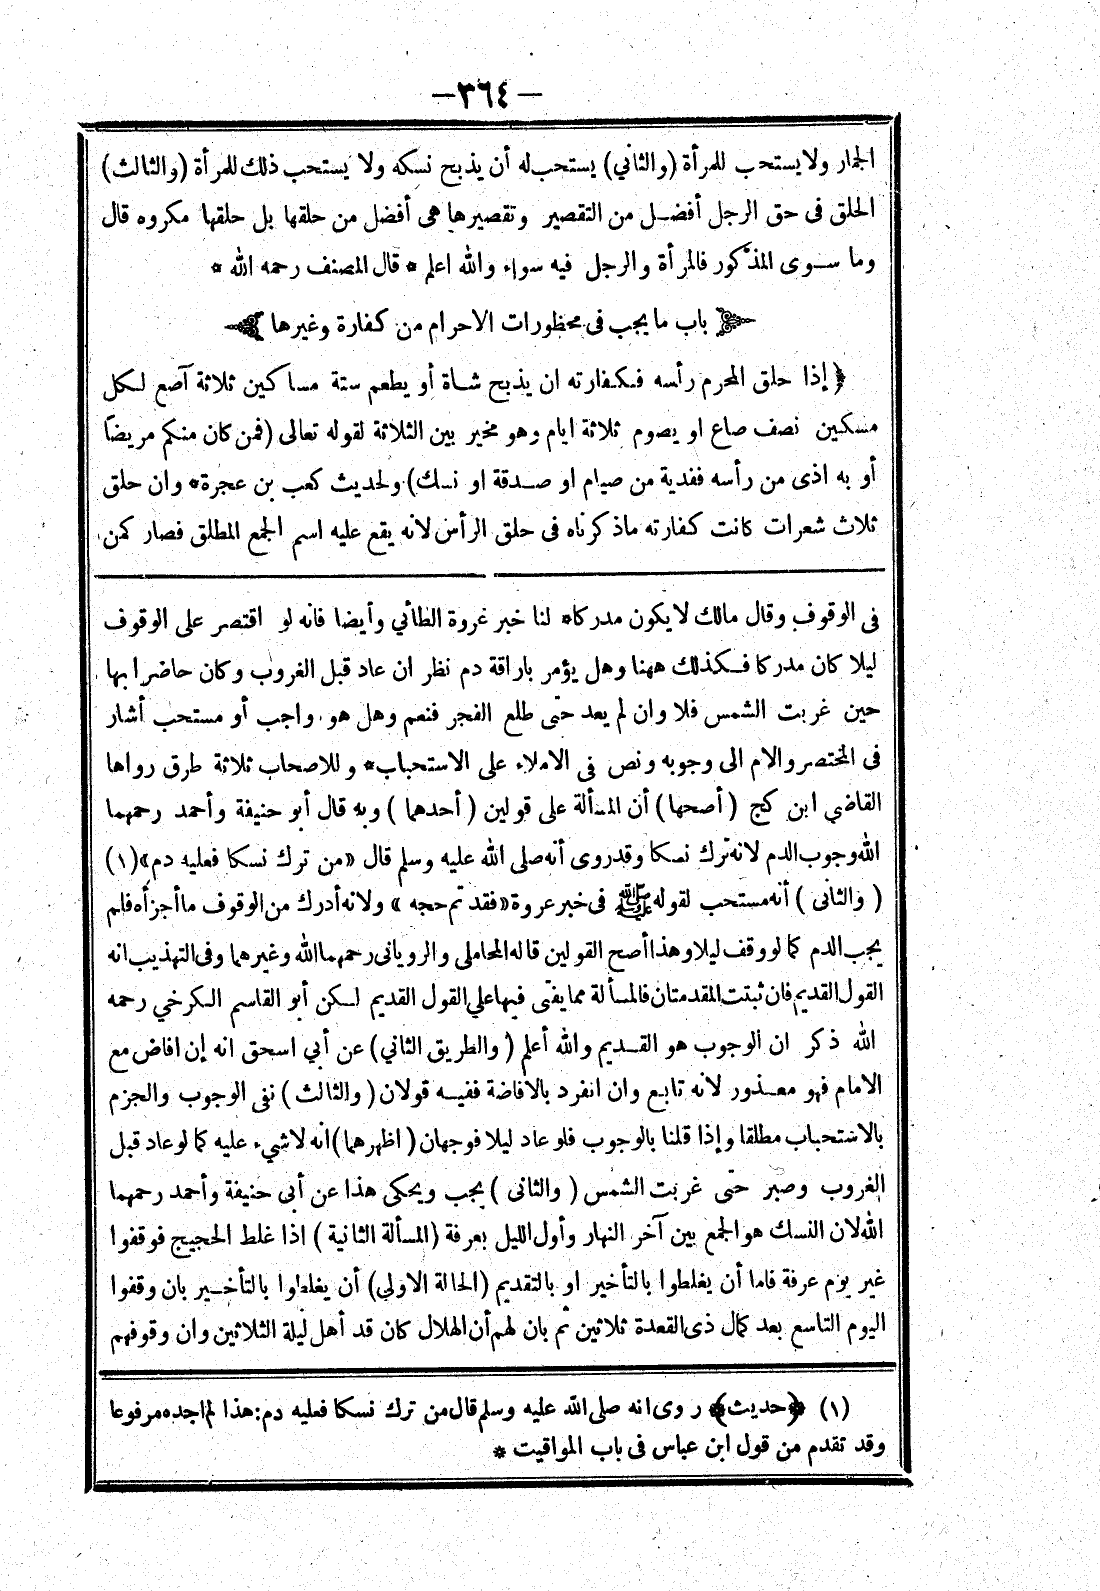 -٣٦٤-
الجمار ولا يستحب للمرأة (والثاني) يستحب له أن يذبح نسكه ولا يستحب ذلك للمرأة (والثالث)
الحلق فى حق الرجل أفضل من التقصير وتقصيرها هى أفضل من حلقها بل حلقها مكروه قال
وما سوى المذكور فالمرأة والرجل فيه سواء والله اعلم * قال المصنف رحمه الله *
باب ما يجب فى محظورات الاحرام من كفارة وغيرها
﴿ إذا حلق المحرم رأسه فكفارته ان يذبح شاة أو يطعم ستة مساكين ثلاثة آصع لكل
مسكين نصف صاع او يصوم ثلاثة ايام وهو مخير بين الثلاثة لقوله تعالى (فمن كان منكم مريضاً
أو به اذى من رأسه ففدية من صيام او صدقة او نسك) ولحديث كعب بن عجرة* وان حلق
ثلاث شعرات كانت كفارته ماذكرناه فى حلق الرأس لانه يقع عليه اسم الجمع المطلق فصار كمن
فى الوقوف وقال مالك لا يكون مدركا* لنا خبر غروة الطائي وأيضا فانه لو اقتصر على الوقوف
ليلا كان مدركا فكذلك ههنا وهل يؤمر باراقة دم نظر ان عاد قبل الغروب وكان حاضرا بها
حين غربت الشمس فلا وان لم يعد حتى طلع الفجر فنعم وهل هو واجب أو مستحب أشار
فى المختصر والام الى وجوبه ونص فى الاملاء على الاستحباب* وللاصحاب ثلاثة طرق رواها
القاضي ابن كج (أصحها) أن المسألة على قولين (أحدهما) وبه قال أبو حنيفة وأحمد رحمهما
الله وجوب الدم لانه ترك نسكا وقد روى أنه صلى الله عليه وسلم قال «من ترك نسكا فعليه دم»(١)
(والثانى) أنه مستحب لقوله ﷺ فى خبر عروة «فقد تم حجه» ولانه أدرك من الوقوف ما أجزأه فلم
يجب الدم كما لو وقف ليلا وهذا أصح القولين قاله المحاملى والرويانى رحمهما الله وغيرهما وفى التهذيب انه
القول القديم فان ثبتت المقدمتان فالمسألة مما يفتى فيها على القول القديم لكن أبو القاسم الكرخي رحمه
الله ذكر ان الوجوب هو القديم والله أعلم (والطريق الثاني) عن أبي اسحق انه إن افاض مع
الامام فهو معذور لانه تابع وان انفرد بالافاضة ففيه قولان (والثالث) نفى الوجوب والجزم
بالاستحباب مطلقا وإذا قلنا بالوجوب فلو عاد ليلا فوجهان (اظهرهما) انه لا شيء عليه كما لو عاد قبل
الغروب وصبر حتى غربت الشمس (والثانى) يجب ويحكى هذا عن أبى حنيفة وأحمد رحمهما
الله لان النسك هو الجمع بين آخر النهار وأول الليل بعرفة (المسألة الثانية) اذا غلط الحجيج فوقفوا
غير يوم عرفة فاما أن يغلطوا بالتأخير او بالتقديم (الحالة الاولى) أن يغلطوا بالتأخير بان وقفوا
اليوم التاسع بعد كمال ذى القعدة ثلاثين ثم بان لهم أن الهلال كان قد أهل ليلة الثلاثين وان وقوفهم
(١) ﴿حديث﴾ روى انه صلى الله عليه وسلم قال من ترك نسكا فعليه دم: هذا لم اجده مرفوعا
وقد تقدم من قول ابن عباس فى باب المواقيت *